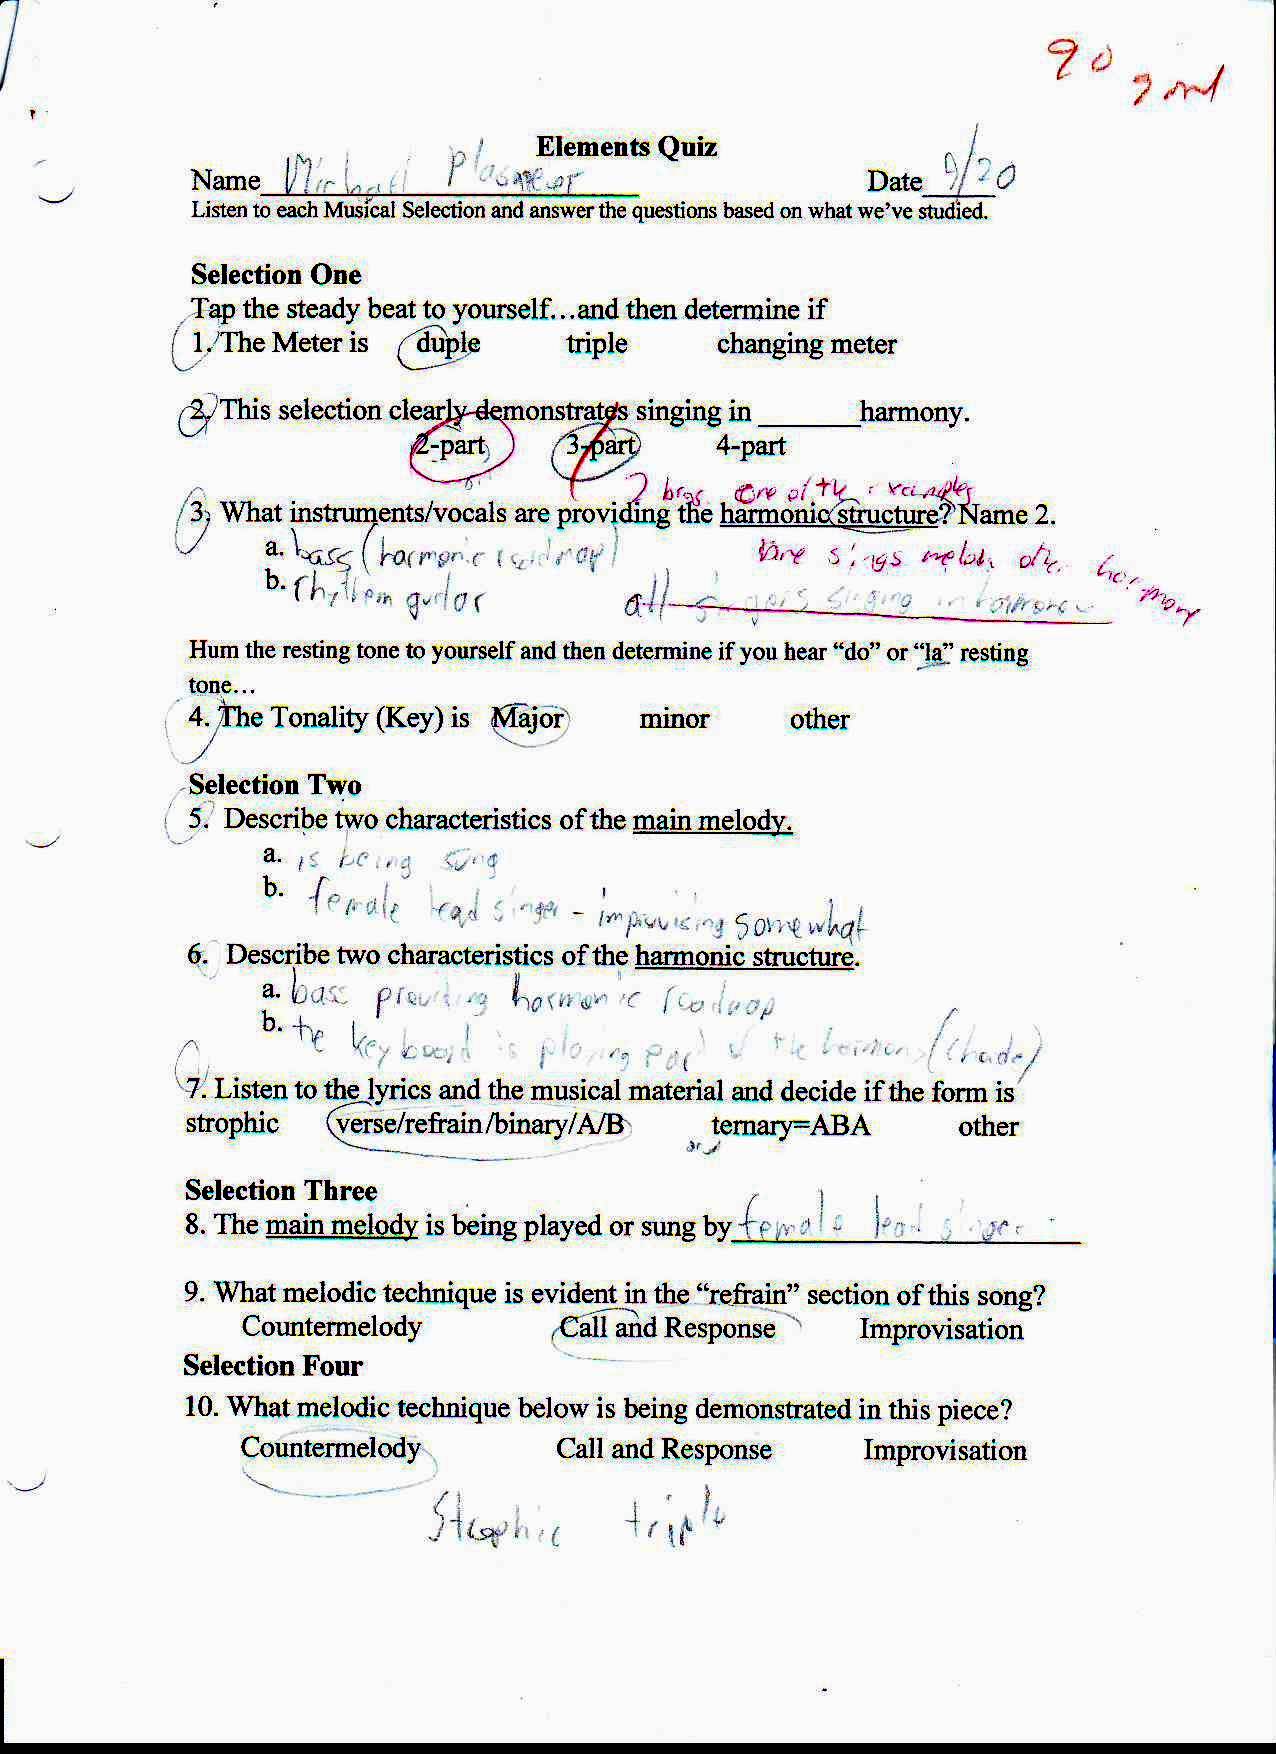 90 good
Elements Quiz
Name Michael Plasmeier Date 9/20
Listen to each Musical Selection and answer the questions based on what we've studied.
Selection One
Tap the steady beat to yourself…and then determine if
1. The Meter is duple triple changing meter
2. This selection clearly demonstrates singing in ______harmony.
2-part 3-part 4-part
2 bros. are of the examples
3. What instruments/vocals are providing the harmonic structure? Name 2.
a. bass (harmonic roadmap)
One sings melod. other harmony
b. rhythem guitar
all singers singing in harmony
Hum the resting tone to yourself and then determine if you hear "do" or "la" resting
tone…
4. The Tonality (Key) is Major minor other
Selection Two
5. Describe two characteristics of the main melody.
a. is being sung
b. female lead singer - improvising somewhat
6. Describe two characteristics of the harmonic structure.
a. bass providing harmonic roadmap
b. the keyboard is playing part of the harmony
7. Listen to the lyrics and the musical material and decide if the form is
strophic verse/refrain/binary/A/B ternary=ABA other
Selection Three
8. The main melody is being played or sung by female lead singer
9. What melodic technique is evident in the "refrain" section of this song?
Countermelody Call and Response Improvisation
Selection Four
10. What melodic technique below is being demonstrated in this piece?
Countermelody Call and Response Improvisation
Strophic triple